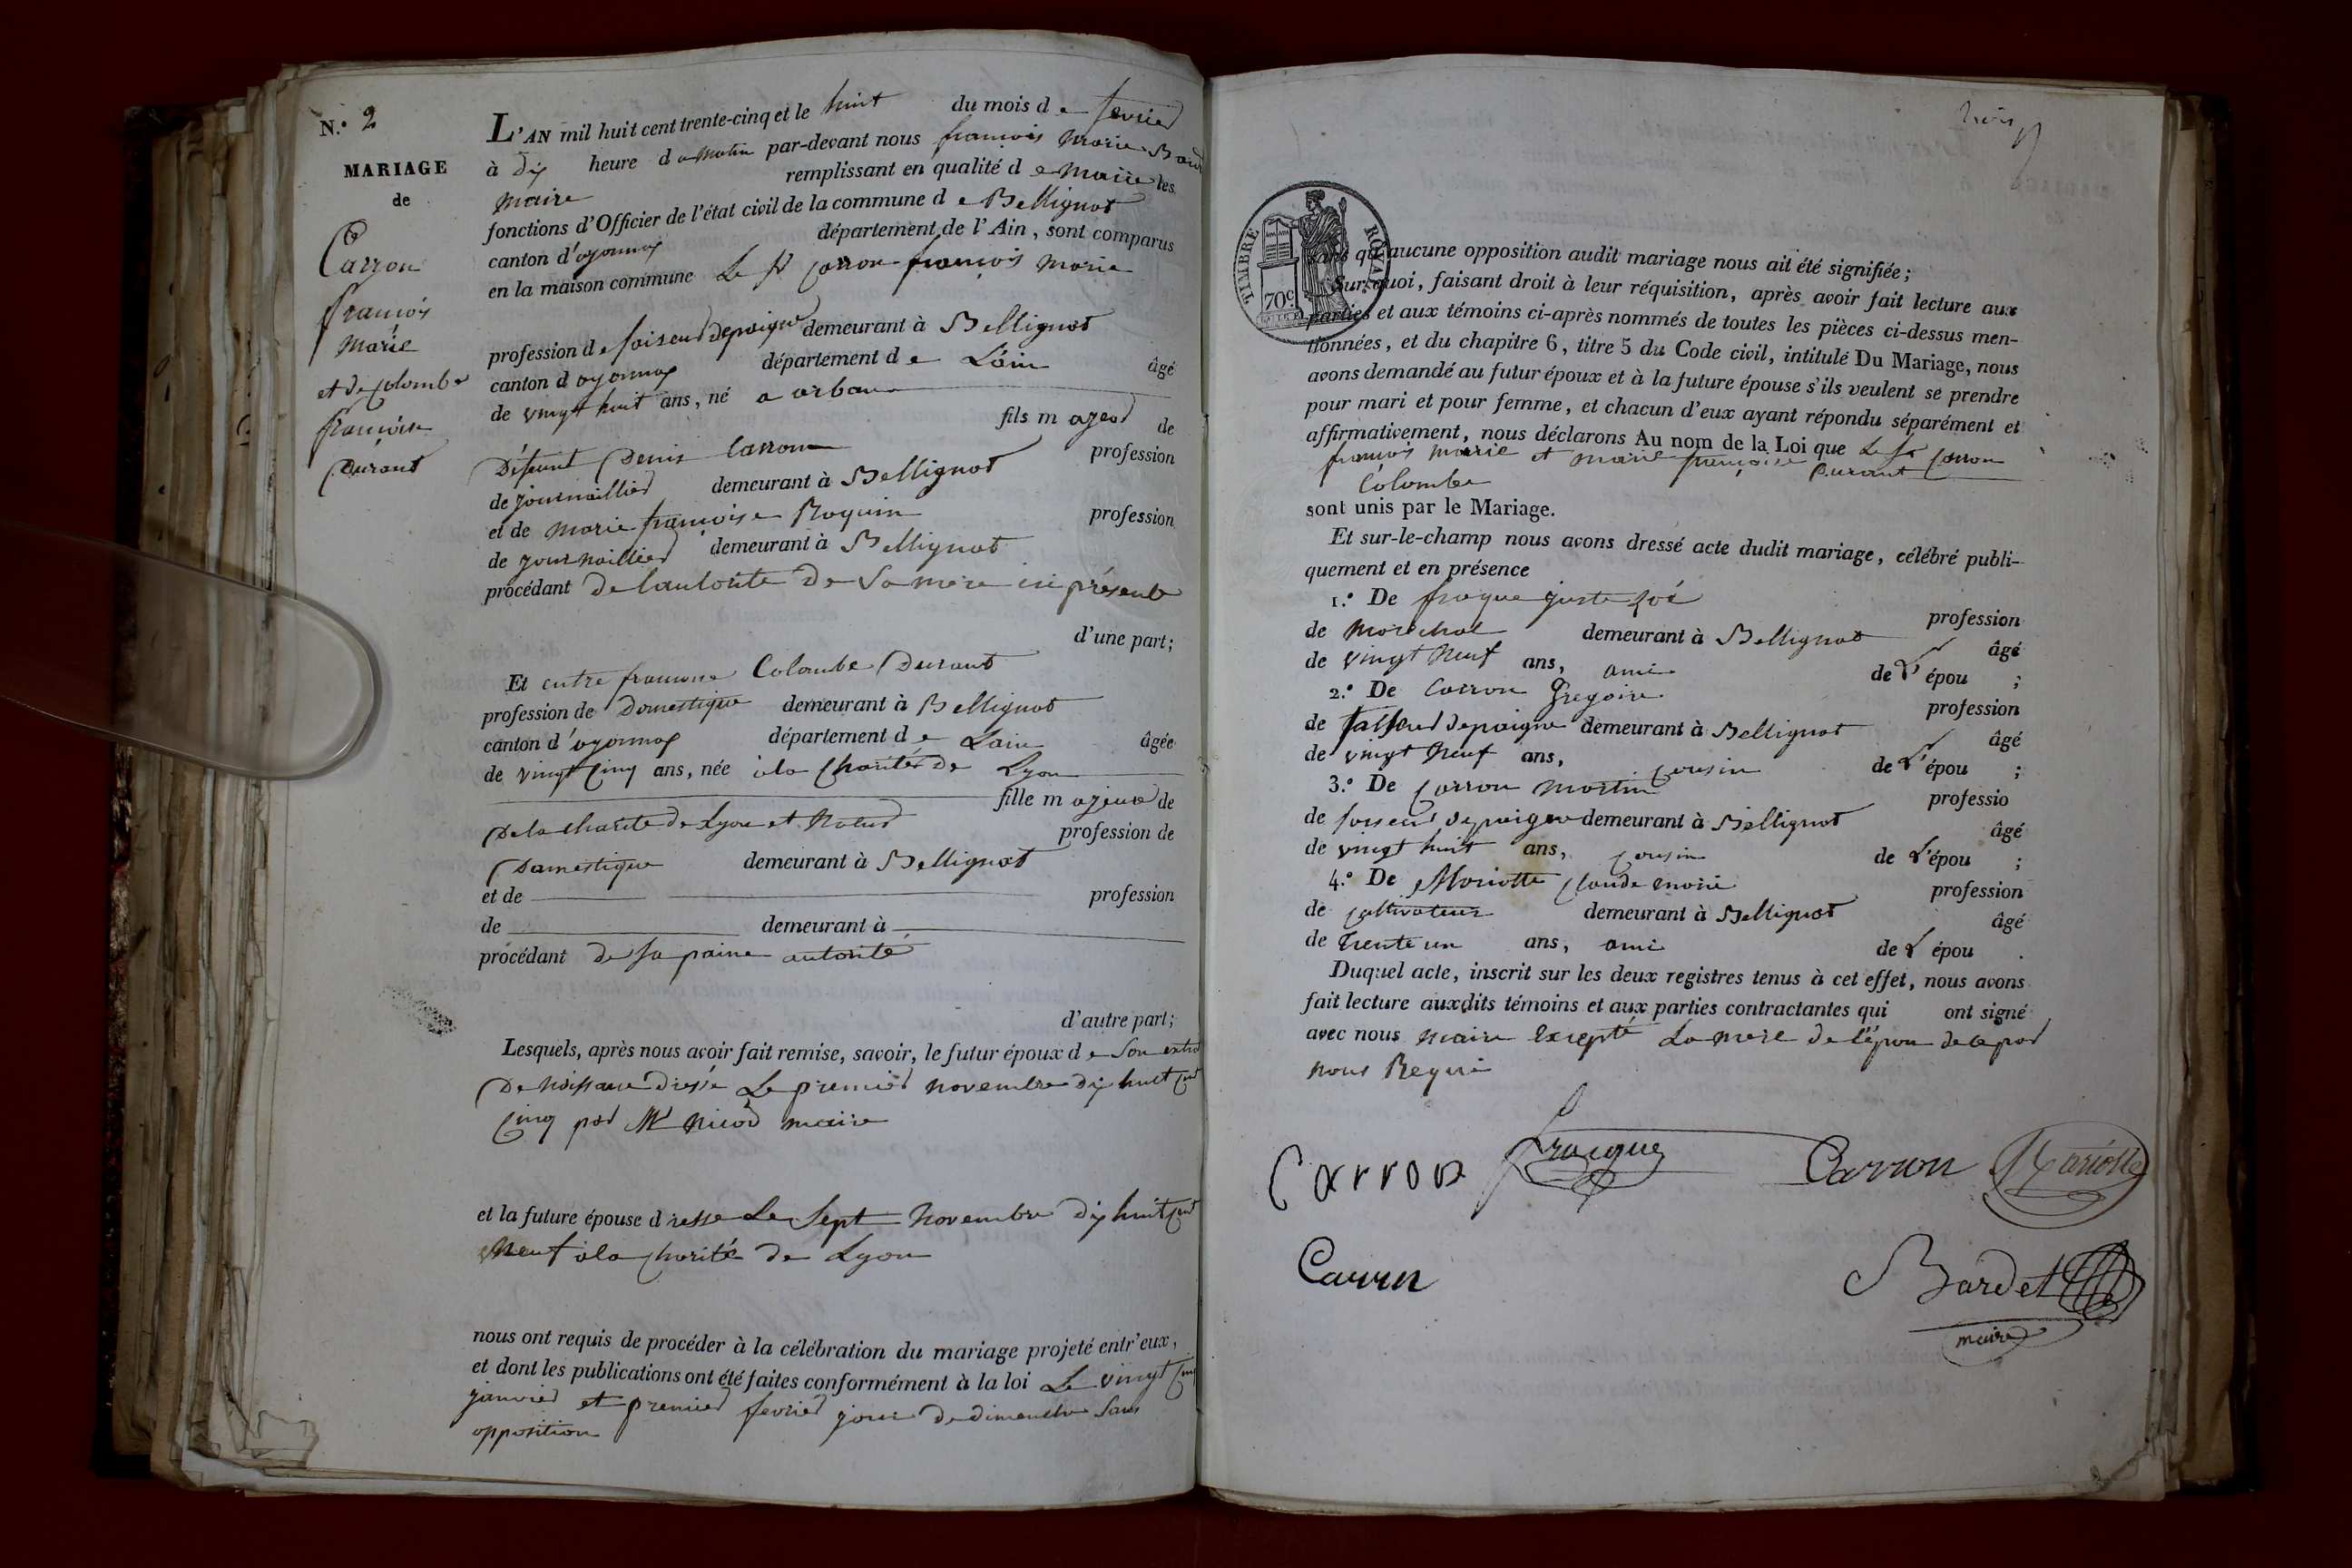 N.º 2
MARIAGE
de
Carron
françois
Marie
et de Colombe
françoise
Durant
L'AN mil huit cent trente-cinq et le huit du mois de fevrier
à dix heure du matin par-devant nous françois Marie Bard
maire remplissant en qualité de Maire les
fonctions d'Officier de l'état civil de la commune de Bellignat
canton d'oyonnax département de l'Ain, sont comparus
en la maison commune Le sr Carron françois Marie
profession de faiseur depaigne demeurant à Bellignat
canton d oyonnax département de Lain âgé
de vingt huit ans, né a arban
fils majeur de
Défunt Denis Carron profession
de journaillier demeurant à Bellignat
et de Marie françoise Roquin profession
de journaillier demeurant à Bellignat
procédant de lautorité de sa mere ici présente
d'une part;
Et entre francoise Colombe Durant
profession de Domestique demeurant à Bellignat
canton d'oyonnax département de Lain âgée
de vingt Cinq ans, née à la Charité de Lyon
fille majeure de
De la charité de Lyon et profession de
Domestique demeurant à Bellignat
et de profession
de demeurant à
procédant de sa paine autorité
d'autre part;
Lesquels, après nous avoir fait remise, savoir, le futur époux de son extrai
De naissance dressé Le premier novembre dix huit Cent
Cinq par Mr nicod maire
et la future épouse dresse Le Sept Novembre dix huit Cent
Neuf à la Charité de Lyon
nous ont requis de procéder à la célébration du mariage projeté entr'eux,
et dont les publications ont été faites conformément à la loi Le vingt Cinq
janvier et premier fevrier jour de dimanche sans
opposition
trois
TIMBRE ROYAL
70c
sans qu'aucune opposition audit mariage nous ait été signifiée;
Sur quoi, faisant droit à leur réquisition, après avoir fait lecture aux
parties et aux témoins ci-après nommés de toutes les pièces ci-dessus men-
tionnées, et du chapitre 6, titre 5 du Code civil, intitulé Du Mariage, nous
avons demandé au futur époux et à la future épouse s'ils veulent se prendre
pour mari et pour femme, et chacun d'eux ayant répondu séparément et
affirmativement, nous déclarons Au nom de la Loi que Le sr Carron
françois Marie et Marie françoise Durant
Colombe
sont unis par le Mariage.
Et sur-le-champ nous avons dressé acte dudit mariage, célébré publi-
quement et en présence
1.º De fraque juste profession
de Maréchal demeurant à Bellignat âgé
de vingt Neuf ans, ami de L'épou ;
2.º De Carron Gregoire profession
de faiseur depaigne demeurant à Bellignat âgé
de vingt Neuf ans, Cousin de L'épou ;
3.º De Carron Martin professio
de faiseur depaigne demeurant à Bellignat âgé
de vingt huit ans, Cousin de L'épou ;
4.º De Mariotte Claude Marie profession
de Cultivateur demeurant à Bellignat âgé
de Trente un ans, ami de L épou .
Duquel acte, inscrit sur les deux registres tenus à cet effet, nous avons
fait lecture auxdits témoins et aux parties contractantes qui ont signé
avec nous Maire Excepté La mere de l'épou de ce par
nous Requi
Carron fracque Carron Mariotte
Carron Bardet
maire